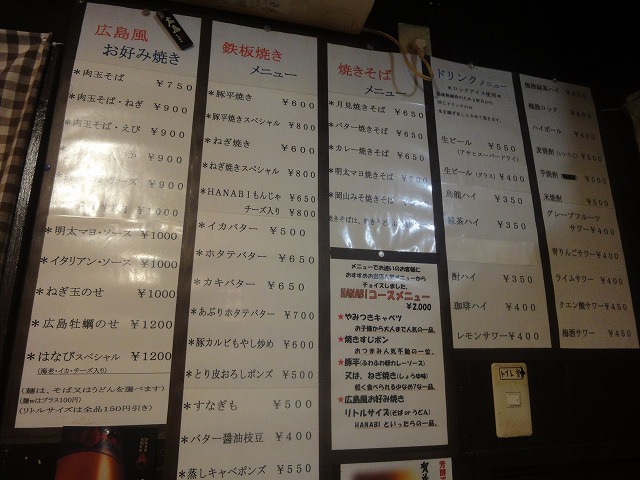 広島風
お好み焼き
*肉玉そば ￥750
*肉玉そば・ねぎ ￥900
*肉玉そば・えび ￥900
￥900
￥900
*明太マヨ・ソース ￥1000
*イタリアン・ソース ￥1000
*ねぎ玉のせ ￥1000
*広島牡蠣のせ ￥1200
*はなびスペシャル ￥1200
(海老・イカ・チーズ入り)
(麺は、そば又はうどんを選べます)
(麺Wはプラス100円)
(リトルサイズは全品150円引き)
鉄板焼き
メニュー
*豚平焼き ￥600
*豚平焼きスペシャル ￥800
*ねぎ焼き ￥600
*ねぎ焼きスペシャル ￥800
*HANABIもんじゃ ￥650
チーズ入り ￥800
*イカバター ￥500
*ホタテバター ￥650
*カキバター ￥650
*あぶりホタテバター ￥700
*豚カルビもやし炒め ￥600
*とり皮おろしポンズ ￥500
*すなぎも ￥500
*バター醤油枝豆 ￥400
*蒸しキャベポンズ ￥550
焼きそば
メニュー
*月見焼きそば ￥650
*バター焼きそば ￥650
*カレー焼きそば ￥650
*明太マヨ焼きそば ￥700
*岡山みそ焼きそば
メニューでお迷いのお客様に
おすすめお食事人気メニューから
チョイスしました。
HANABIコースメニュー
￥2,000
★やみつきキャベツ
お子様から大人まで人気の一品。
★焼きすじポン
おつまみ人気不動の一位。
★豚平(ふわふわ卵カレーソース)
又は、ねぎ焼き(しょうゆ味)
軽く食べられる少なめ?な一品。
★広島風お好み焼き
リトルサイズ(そばorうどん)
HANABIといったらの一品。
ドリンクメニュー
*ロックアイス使用*
生ビール ￥550
(アサヒスーパードライ)
生ビール(グラス) ￥400
烏龍ハイ ￥350
緑茶ハイ ￥350
酎ハイ ￥350
珈琲ハイ ￥400
レモンサワー ￥400
梅酒ロック
ハイボール ￥400
麦焼酎 ￥500
芋焼酎 ￥500
米焼酎 ￥500
グレープフルーツ
サワー ￥400
青りんごサワー ￥400
ライムサワー ￥400
クエン酸サワー ￥450
梅酒サワー ￥450
トイレ